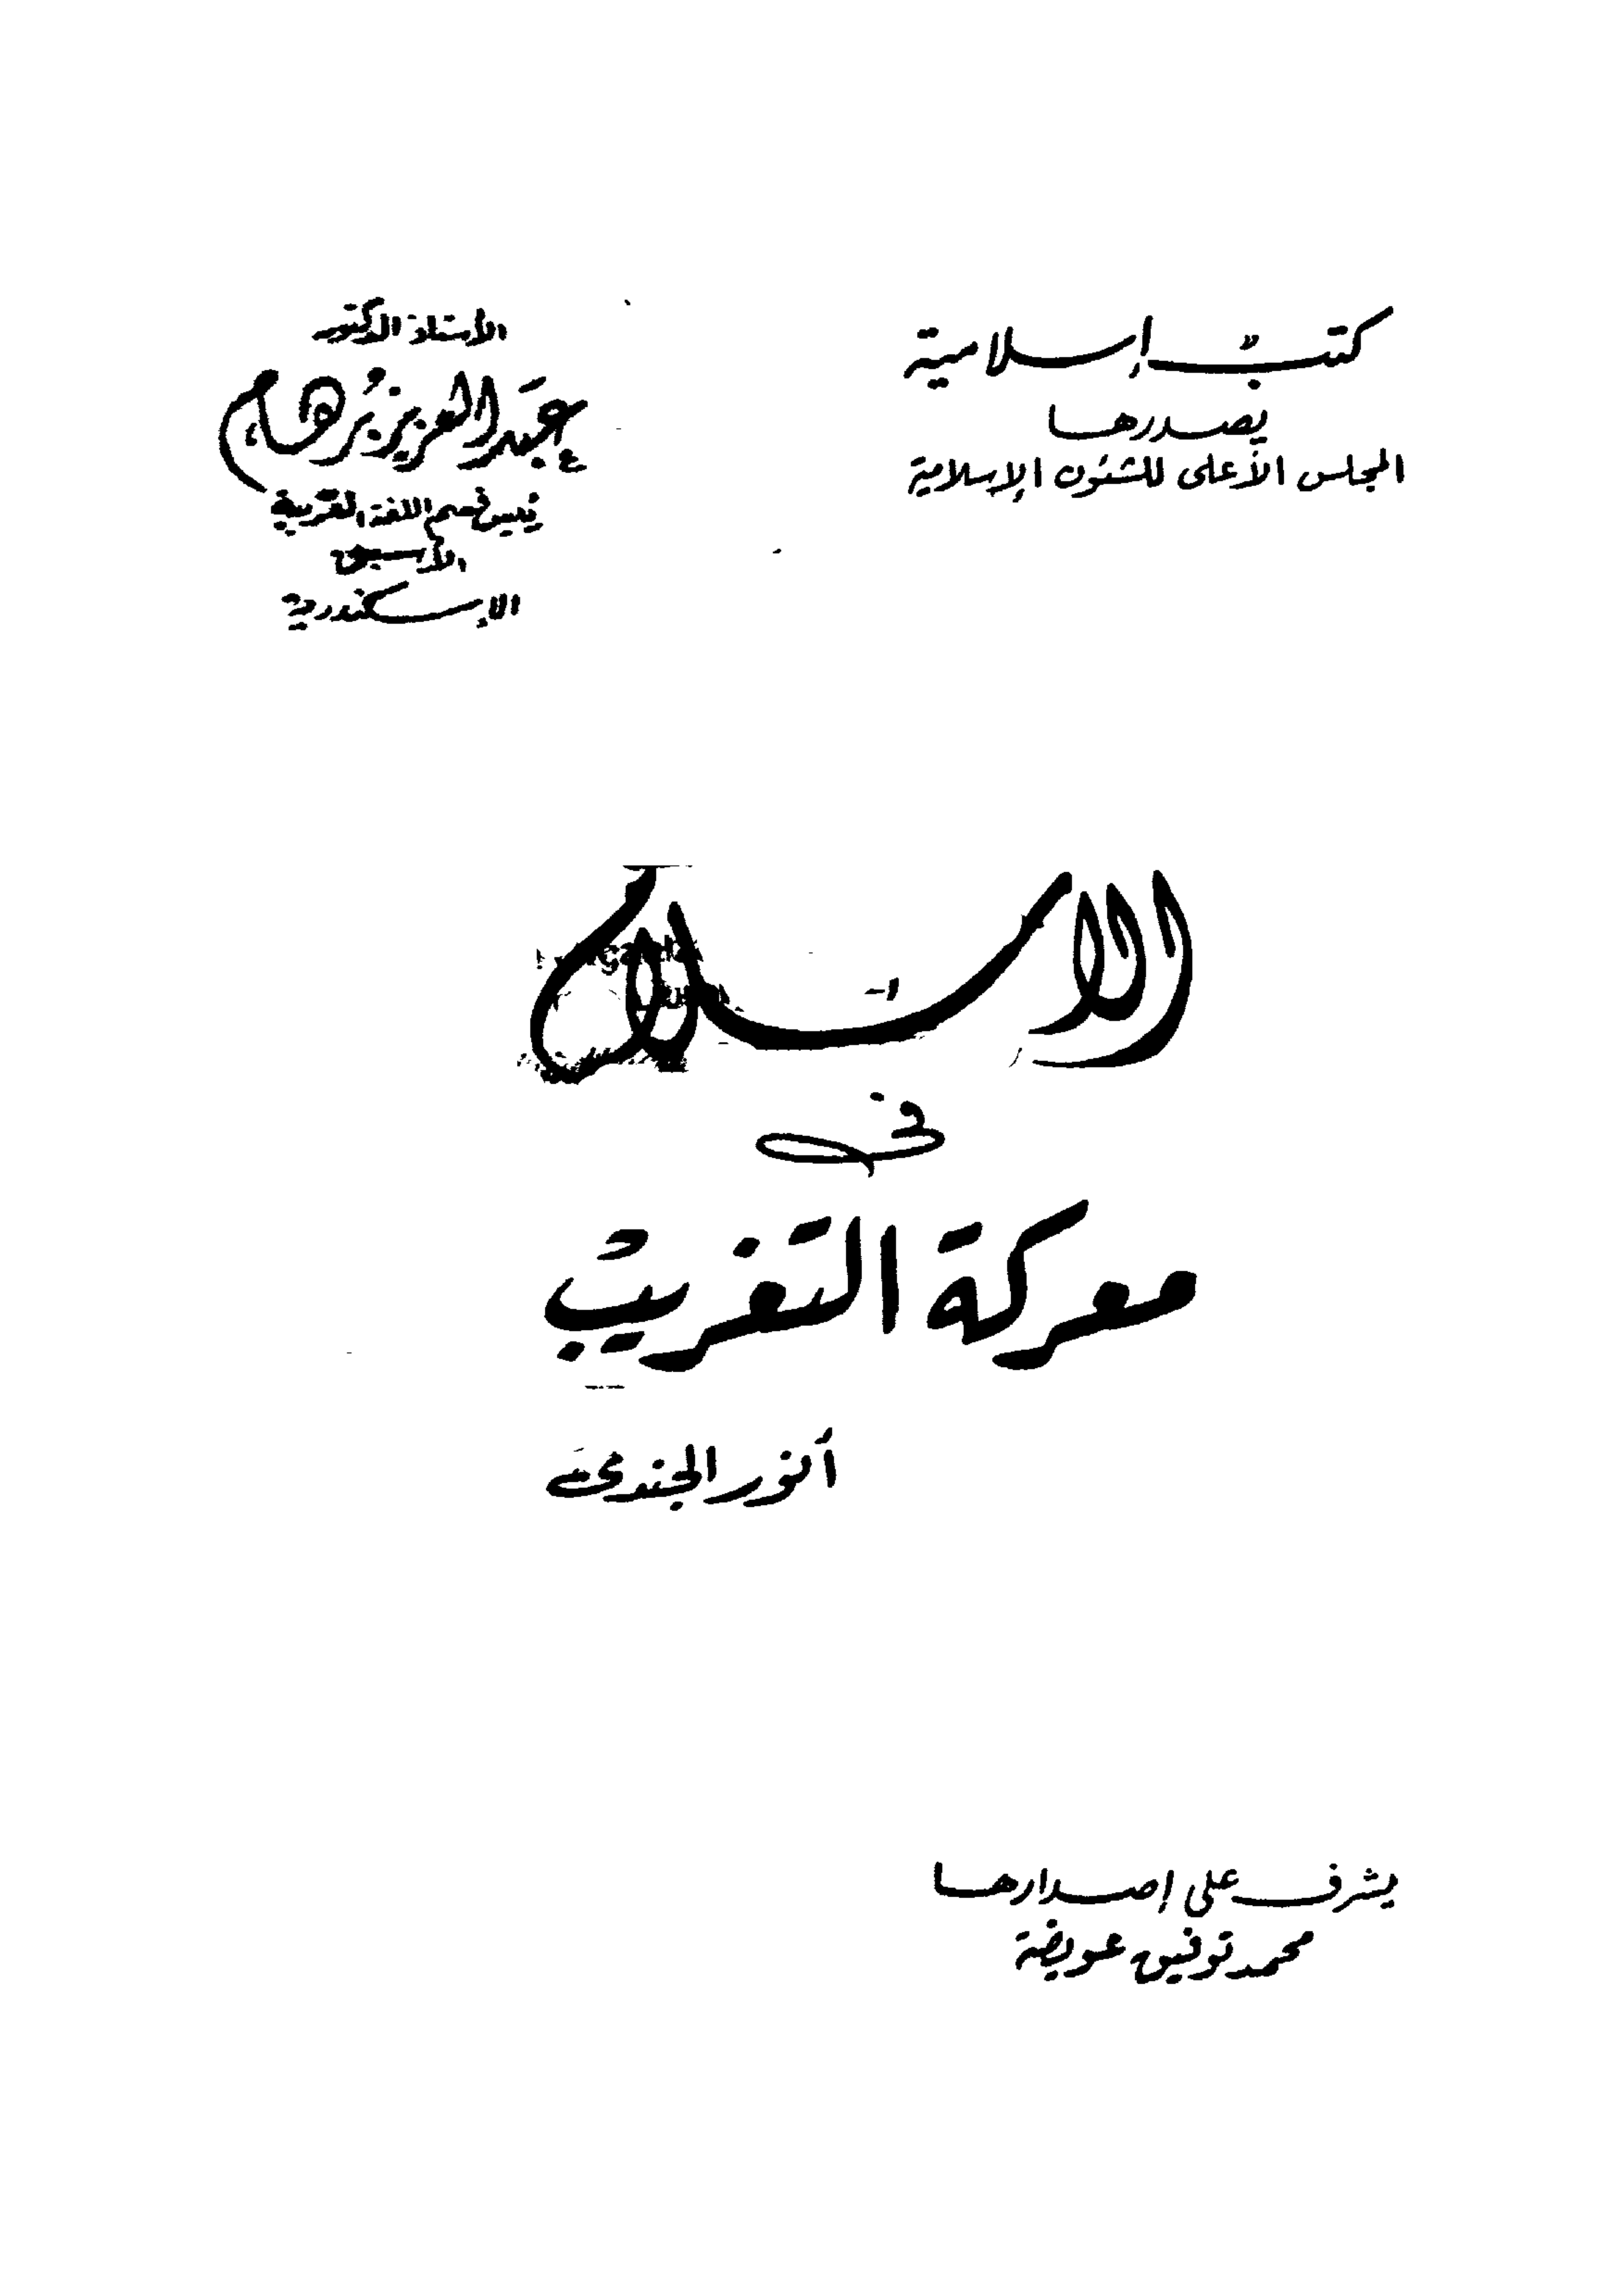 كتب إسلامية
يصدرها
المجلس الأعلى للشئون الإسلامية
الأستاذ الدكتور
عبد العزيز برهام
رئيس قسم اللغة العربية
الأسبق
الإسكندرية
الإسلام
فى
معركة التغريب
أنور الجندى
يشرف على إصدارها
محمد توفيق عويضة